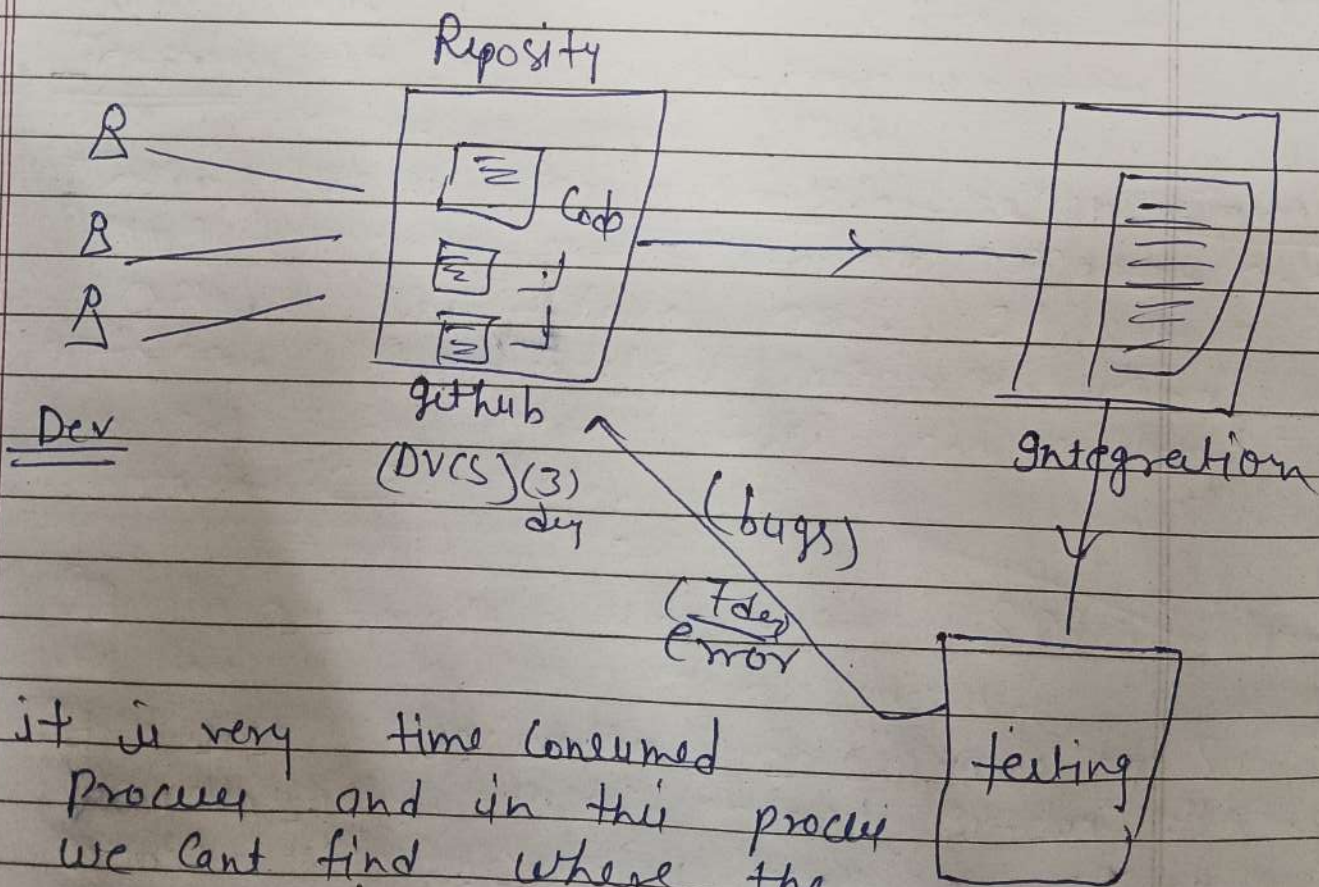 Reposity
Code
github
Dev
(DVCS) (3)
day
Integration
(bugs)
(7 day)
error
testing
it is very time consumed
process and in this process
we cant find where the